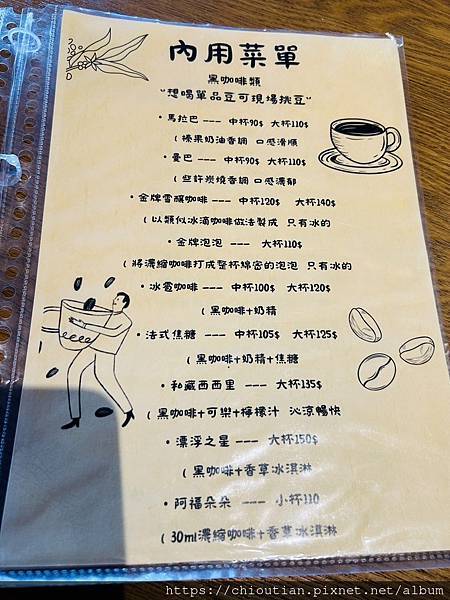 內用菜單
黑咖啡類
"想喝單品豆可現場挑豆"
・馬拉巴 --- 中杯90$ 大杯110$
(榛果奶油香調 口感滑順
・曼巴 --- 中杯90$ 大杯110$
(些許炭燒香調 口感濃郁
・金牌雪釀咖啡 --- 中杯120$ 大杯140$
(以類似冰滴咖啡做法製成 只有冰的
・金牌泡泡 --- 大杯110$
(將濃縮咖啡打成整杯綿密的泡泡 只有冰的
・冰蜜咖啡 --- 中杯100$ 大杯120$
(黑咖啡+奶精
・法式焦糖 --- 中杯105$ 大杯125$
(黑咖啡+奶精+焦糖
・私藏西西里 --- 大杯135$
(黑咖啡+可樂+檸檬汁 沁涼暢快
・漂浮之星 --- 大杯150$
(黑咖啡+香草冰淇淋
・阿福朵朵 --- 小杯110
(30ml濃縮咖啡+香草冰淇淋
https://chioutian.pixnet.net/album